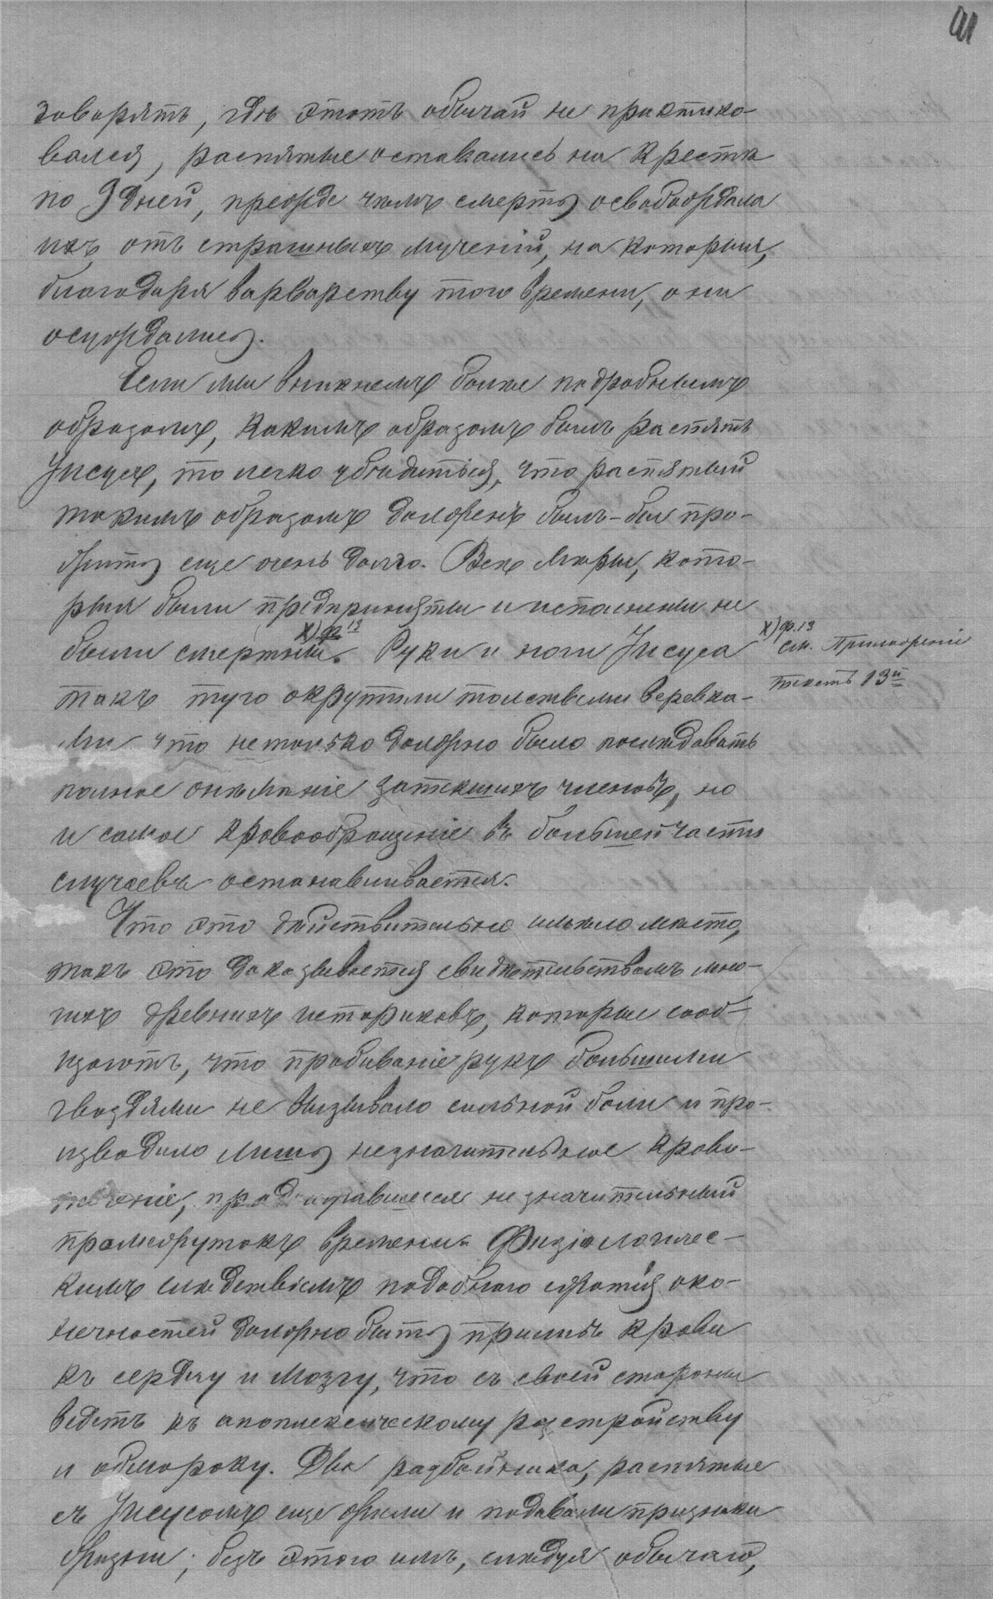 говорятъ, гдѣ этотъ обычай не практико-
вался, распятые оставались на крестѣ
по 9 дней, прежде чѣмъ смерть освобождала
ихъ отъ страшныхъ мученій, на которыя,
благодаря варварству того времени, они
осуждались.
Если мы вникнемъ болѣе подробнымъ
образомъ, какимъ образомъ былъ распятъ
Іисусъ, то легко убѣдиться, что распятый
такимъ образомъ долженъ былъ-бы про-
жить еще очень долго. Всѣ мѣры, кото-
рыя были предприняты и исполнены не
были смертны х) ф. 13. Руки и ноги Іисуса
х) ф. 13 см. Примѣчаній
такъ туго окрутили толстыми веревка-
текстъ 13й
ми что не только должно было послѣдовать
полное онѣмѣніе затекшихъ членовъ, но
и самое кровообращеніе въ большей части
случаевъ останавливается.
Что это дѣйствительно имѣло мѣсто,
такъ это доказывается свидѣтельствомъ мно-
гихъ древнихъ историковъ, которые сооб-
щаютъ, что пробиваніе рукъ большими
гвоздями не вызывало сильной боли и про-
изводило лишь незначительное крово-
теченіе, продолжавшееся незначительный
промежутокъ времени. Физіологичес-
кимъ слѣдствіемъ подобнаго сжатія око-
нечностей должно быть приливъ крови
къ сердцу и мозгу, что съ своей стороны
ведетъ къ апоплексическому разстройству
и обмороку. Два разбойника, распятые
съ Іисусомъ еще жили и подавали признаки
жизни; безъ этого имъ, слѣдуя обычаю,